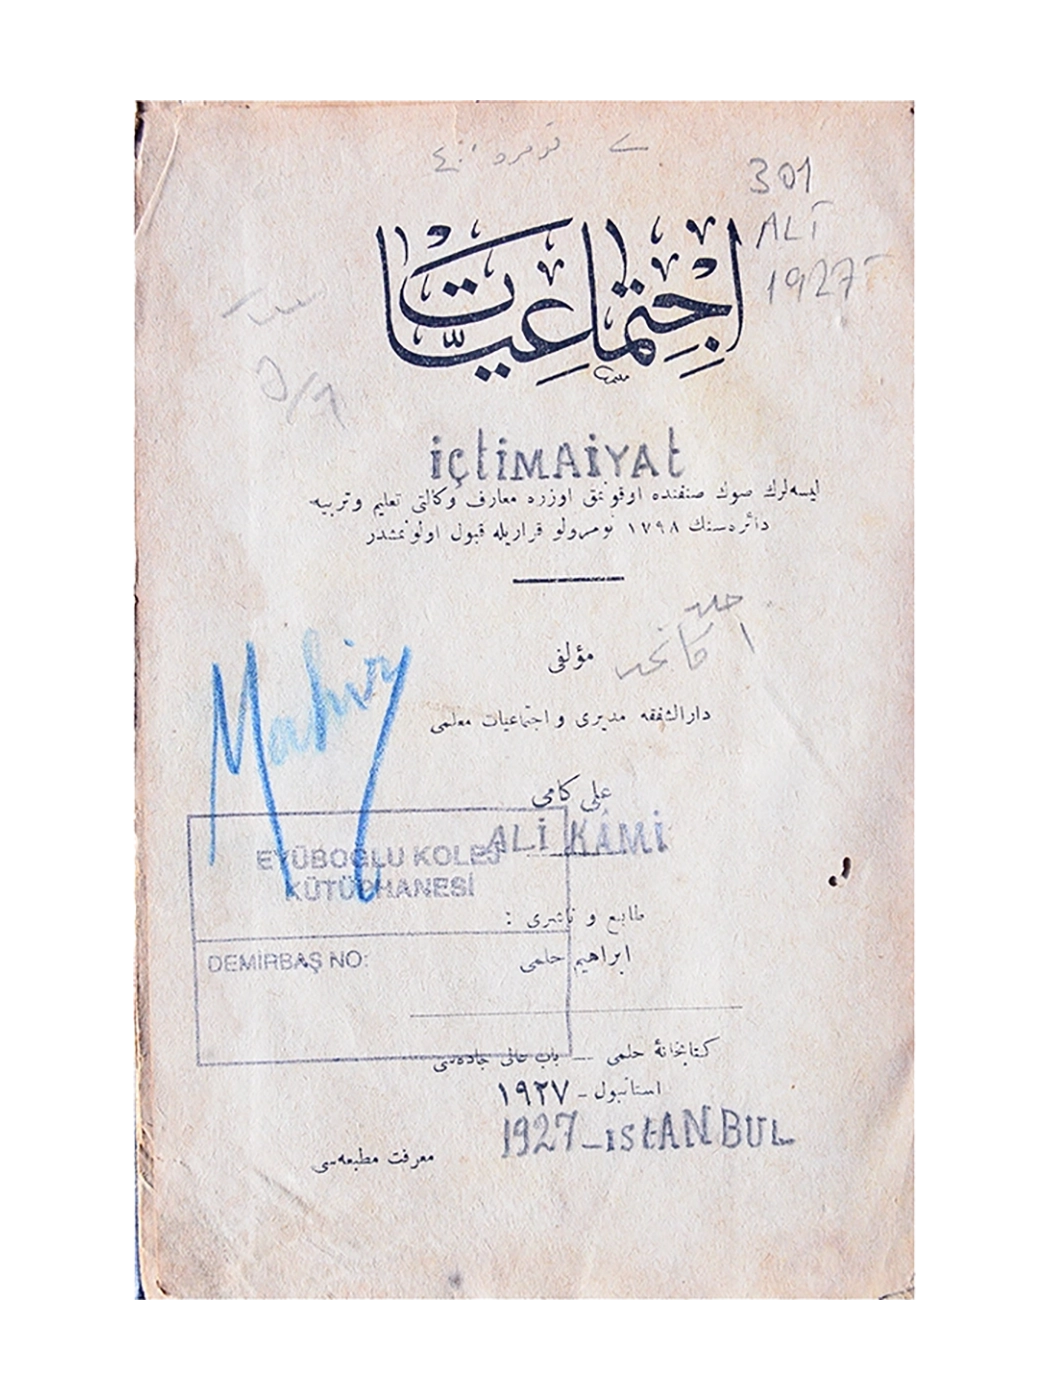 نومرو : ٤
301
ALİ
1927
اجتماعيات
içtimaiyat
ليسه‌لرك صوك صنفنده اوقونمق اوزره معارف وكالتى تعليم وتربيه
دائره‌سنك ١٧٩٨ نومرولو قراريله قبول اولونمشدر
مؤلفى
دارالشفقه مديرى و اجتماعيات معلمى
Mahir
على كامى
ALİ KÂMİ
EYÜBOĞLU KOLEJ
KÜTÜPHANESİ
DEMİRBAŞ NO:
طابع و ناشرى :
ابراهيم حلمى
كتابخانهٔ حلمى — باب عالى جاده‌سى
استانبول - ١٩٢٧
1927-istanbul
معرفت مطبعه‌سى